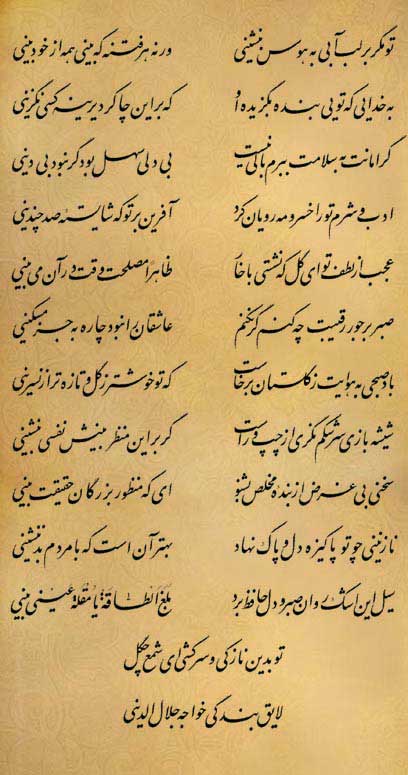 تو مگر بر لب آبی به هوس بنشینی ور نه هر فتنه که بینی همه از خود بینی
به خدایی که تویی بنده بگزیده او که بر این چاکر دیرینه کسی نگزینی
گر امانت به سلامت ببرم باکی نیست بی دلی سهل بود گر نبود بی دینی
ادب و شرم تو را خسرو مه رویان کرد آفرین بر تو که شایسته صد چندینی
عجب از لطف تو ای گل که نشستی با خار ظاهرا مصلحت وقت در آن می بینی
صبر بر جور رقیبت چه کنم گر نکنم عاشقان را نبود چاره به جز مسکینی
باد صبحی به هوایت ز گلستان برخاست که تو خوشتر ز گل و تازه تر از نسرینی
شیشه بازی سرشکم نگری از چپ و راست گر بر این منظر بینش نفسی بنشینی
سخنی بی غرض از بنده مخلص بشنو ای که منظور بزرگان حقیقت بینی
نازنینی چو تو پاکیزه دل و پاک نهاد بهتر آن است که با مردم بد ننشینی
سیل این اشک روان صبر و دل حافظ برد بلغ الطاقة یا مقلة عینی بینی
تو بدین نازکی و سرکشی ای شمع چگل
لایق بندگی خواجه جلال الدینی